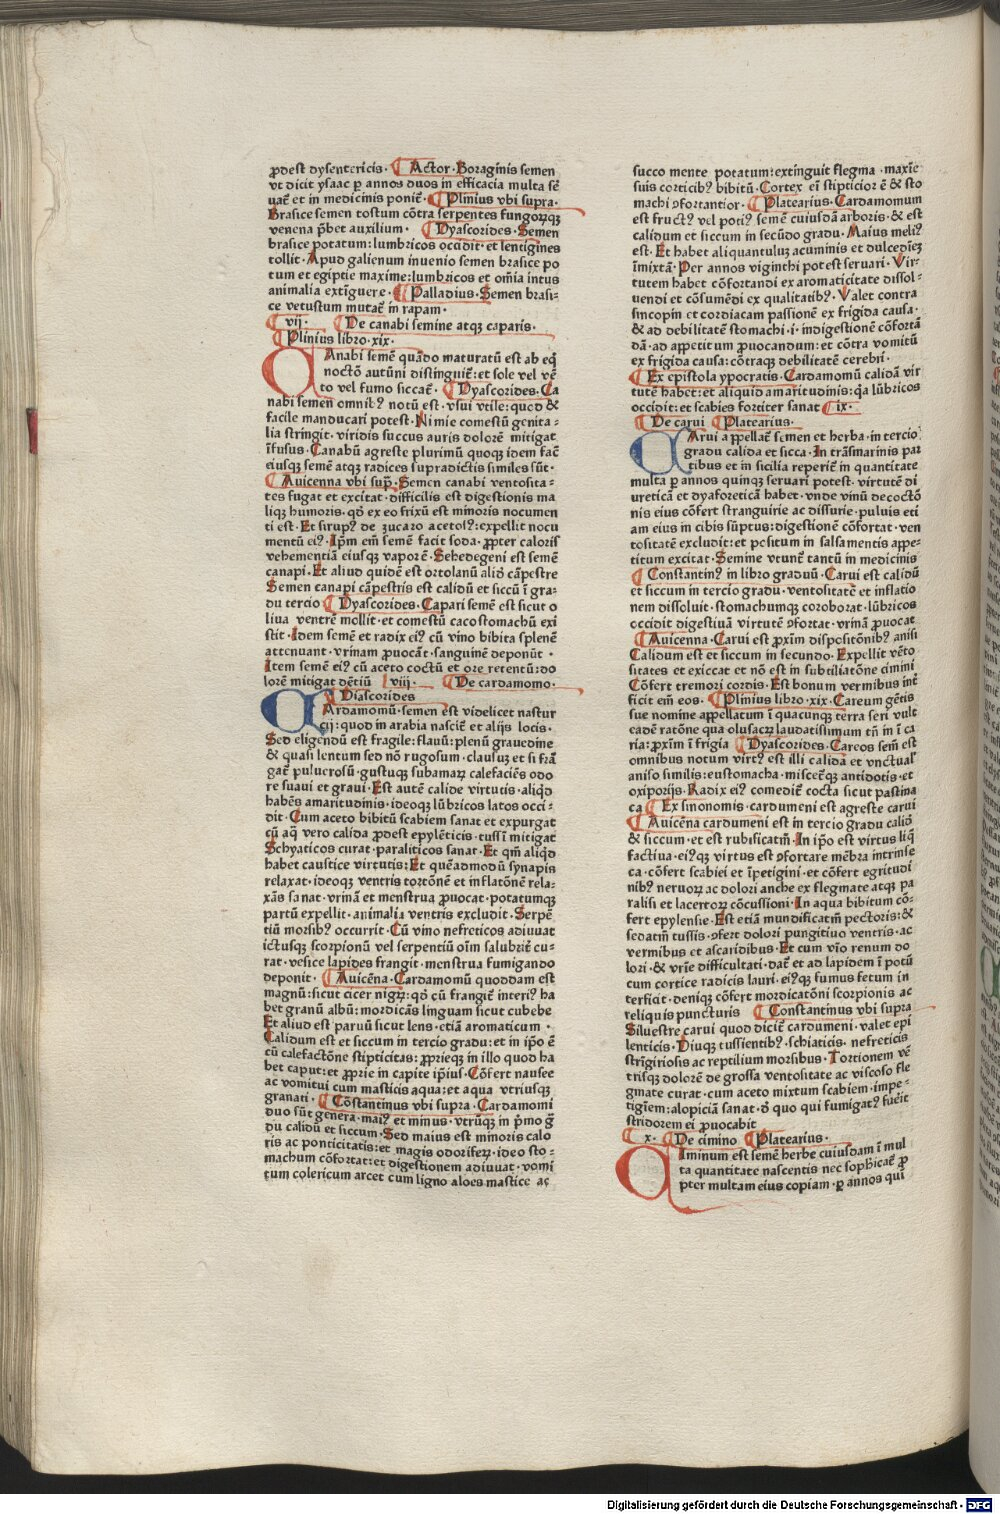 ꝓdest dysentericis · Actor · Boraginis semen
vt dicit ysaac ꝑ annos duos in efficacia multa sẽ
uat̃ et in medicinis ponit̃ · Plinius vbi supra ·
Brasice semen tostum cõtra serpentes fungorꝝqꝫ
venena p̃bet auxilium · Dyascorides · Semen
brasice potatum: lumbricos occidit · et lentigines
tollit · Apud galienum inuenio semen brasice po
tum et egiptie maxime: lumbricos et om̃ia intus
animalia extĩguere · Palladius · Semen brasi⸗
ce vetustum mutat̃ in rapam ·
vij · De canabi semine atqꝫ caparis ·
Plinius libro · xix ·
Anabi semẽ quãdo maturatũ est ab eq̃
noctõ autũni distinguit̃: et sole vel vẽ
to vel fumo siccat̃ · Dyascorides · Ca
nabi semen omnibꝰ notũ est · vsui vtile: quod &
facile manducari potest · Nimie comestũ genita⸗
lia stringit · viridis succus auris dolorẽ mitigat
ĩfusus · Canabũ agreste plurimũ quoqꝫ idem fac̃
eiusqꝫ semẽ atqꝫ radices supradictis similes sũt ·
Auicenna vbi sup̃ · Semen canabi ventosita⸗
tes fugat et excitat · difficilis est digestionis ma
liqꝫ humoris · qd̃ ex eo frixũ est minoris nocumen
ti est · Et sirupꝰ de zucaro acetosꝰ: expellit nocu
mentũ eiꝰ · Ip̃m em̃ semẽ facit soda · ꝓpter caloris
vehementiã eiusqꝫ vaporẽ · Sehedegeni est semẽ
canapi · Et aliud quidẽ est ortolanũ aliđ cãpestre
Semen canapi cãpestris est calidũ et siccũ ĩ gra⸗
du tercio Dyascorides · Capari semẽ est sicut o
liua ventrẽ mollit · et comestũ cacostomachũ exi
stit · Idem semẽ et radix eiꝰ cũ vino bibita splenẽ
attenuant · vrinam ꝓuocãt · sanguinẽ deponũt ·
Item semẽ eiꝰ cũ aceto coctũ et ore retentũ: do
lorẽ mitigat dẽtiũ viij · De cardamomo ·
Diascorides
Ardamomũ · semen est videlicet nastur
cij: quod in arabia nascit̃ et alijs locis ·
Sed eligendũ est fragile: flauũ: plenũ grauedine
& quasi lentum sed nõ rugosum · clausuꝫ et si frã
gat̃ puluerosũ · gustuqꝫ subamarꝫ calefaciẽs odo
re suaui et graui · Est autẽ calide virtutis · aliqđ
habẽs amaritudinis · ideoqꝫ lũbricos latos occi⸗
dit · Cum aceto bibitũ scabiem sanat et expurgat
cũ aq̃ vero calida ꝓdest epylẽticis · tussĩ mitigat
Schyaticos curat · paraliticos sanat · Et qm̃ aliqđ
habet caustice virtutis: Et quẽadmodũ synapis
relaxat · ideoqꝫ ventris tortõnẽ et inflatõnẽ rela⸗
xãs sanat · vrinã et menstrua ꝓuocat · potatumqꝫ
partũ expellit · animalia ventris excludit · Serpẽ
tiũ morsibꝰ occurrit · Cũ vino nefreticos adiuuat
ictusqꝫ scorpionũ vel serpentiũ oĩm salubrit̃ cu⸗
rat · vesice lapides frangit · menstrua fumigando
deponit · Auicẽna · Cardamomũ quoddam est
magnũ: sicut cicer nigrꝝ: qđ cũ frangit̃ interiꝰ ha
bet granũ albũ: mordicãs linguam sicut cubebe
Et aliud est paruũ sicut lens · etiã aromaticum ·
Calidum est et siccum in tercio gradu: et in ip̃o ẽ
cũ calefactõne stipticitas: ꝓprieqꝫ in illo quod ha
bet caput: et ꝓprie in capite ip̃ius · Cõfert nausee
ac vomitui cum masticis aqua: et aqua vtriusqꝫ
granati · Cõstantinus vbi supra · Cardamomi
duo sũt genera · maiꝰ et minus · vtrũqꝫ in p̃mo g̃
du calidũ et siccum · Sed maius est minoris calo
ris ac ponticitatis: et magis odoriferꝝ · ideo sto⸗
machum cõfortat: et digestionem adiuuat · vomi
tum colericum arcet cum ligno aloes mastice ac
succo mente potatum: extinguit flegma · maxĩe
suis corticibꝰ bibitũ · Cortex ei̊ stipticior ẽ & sto
machi ꝯfortantior · Platearius · Cardamomum
est fructꝰ vel potiꝰ semẽ cuiusdã arboris · & est
calidum et siccum in secũdo gradu · Maius meliꝰ
est · Et habet aliquantuluꝫ acuminis et dulcedĩeꝫ
ĩmixtã · Per annos viginthi potest seruari · Vir⸗
tutem habet cõfortandi ex aromaticitate dissol⸗
uendi et cõsumẽdi ex qualitatibꝰ · Valet contra
sincopin et cordiacam passionẽ ex frigida causa ·
& ad debilitatẽ stomachi · i · indigestionẽ cõfortã
dã · ad appetitum ꝓuocandum: et cõtra vomitũ
ex frigida causa: cõtraqꝫ debilitatẽ cerebri ·
Ex epistola ypocratis · Cardamomũ calidã vir
tutẽ habet: et aliquid amaritudinis: q̃a lũbricos
occidit: et scabies fortiter sanat ix ·
De carui Platearius ·
Arui appellat̃ semen et herba · in tercio
gradu calida et sicca · In trãsmarinis par
tibus et in sicilia reperit̃ in quantitate
multa ꝑ annos quinqꝫ seruari potest · virtutẽ di
ureticã et dyaforeticã habet · vnde vinũ decoctõ
nis eius cõfert stranguirie ac dissurie · puluis eti
am eius in cibis sũptus: digestionẽ cõfortat · ven
tositatẽ excludit: et positum in salsamentis appe⸗
titum excitat · Semine vtunt̃ tantũ in medicinis
Constantinꝰ in libro graduũ · Carui est calidũ
et siccum in tercio gradu · ventositatẽ et inflatio
nem dissoluit · stomachumqꝫ coroborat · lũbricos
occidit digestiuã virtutẽ ꝯfortat · vrinã ꝓuocat
Auicenna · Carui est ꝓxĩm dispositõnibꝰ anisi
Calidum est et siccum in secundo · Expellit vẽto
sitates et exiccat et nõ est in subtiliatõne cimini
Cõfert tremori cordis · Est bonum vermibus int̃
ficit em̃ eos · Plinius libro · xix · Careum gẽtis
sue nomine appellatum ĩ quacunqꝫ terra seri vult
cadẽ ratõne qua olusacrꝝ laudatissimum tñ in ĩ ca
ria: ꝓxĩm ĩ frigia Dyascorides · Careos sem̃ est
omnibus notum virtꝰ est illi calida et vnctual̃
aniso similis: eustomacha · miscet̃qꝫ antidotis · et
oxiporijs · Radix eiꝰ comedit̃ cocta sicut pastina
ca Ex sinonomis · cardumeni est agreste carui
Auicẽna cardumeni est in tercio gradu calid̃
& siccum · et est rubificatm̃ · In ip̃o est virtus liq̃
factiua · eiꝰqꝫ virtus est ꝯfortare mẽbra intrinse
ca · cõfert scabiei et ĩpetigini · et cõfert egritudi
nibꝰ neruorꝝ ac dolori anche ex flegmate atqꝫ pa
ralisi et lacertorꝝ cõcussioni · In aqua bibitum cõ⸗
fert epylensie · Est etiã mundificatm̃ pectoris: &
sedatm̃ tussis · ꝯfert dolori pungitiuo ventris · ac
vermibus et ascaridibus · Et cum vĩo renum do
lori · & vrĩe difficultati · dat̃ et ad lapidem ĩ potũ
cum cortice radicis lauri · eiꝰqꝫ fumus fetum in
terficit · deniqꝫ cõfert mordicatõni scorpionis ac
reliquis puncturis Constantinus vbi supra
Siluestre carui quod dicit̃ cardumeni · valet epi
lenticis · Diuqꝫ tussientibꝰ · schiaticis · nefreticis
strĩgiriosis ac reptilium morsibus · Tortionem vẽ
trisqꝫ dolorẽ de grossa ventositate ac viscoso fle
gmate curat · cum aceto mixtum scabiem · impe⸗
tigĩem: alopiciã sanat · đ quo qui fumigatꝰ fuerit
stridorem ei ꝓuocabit
x · De cimino Platearius ·
Iminum est semẽ herbe cuiusdam ĩ mul
ta quantitate nascentis nec sophicat̃ ꝓ
pter multam eius copiam · ꝑ annos qui
Digitalisierung gefördert durch die Deutsche Forschungsgemeinschaft · DFG